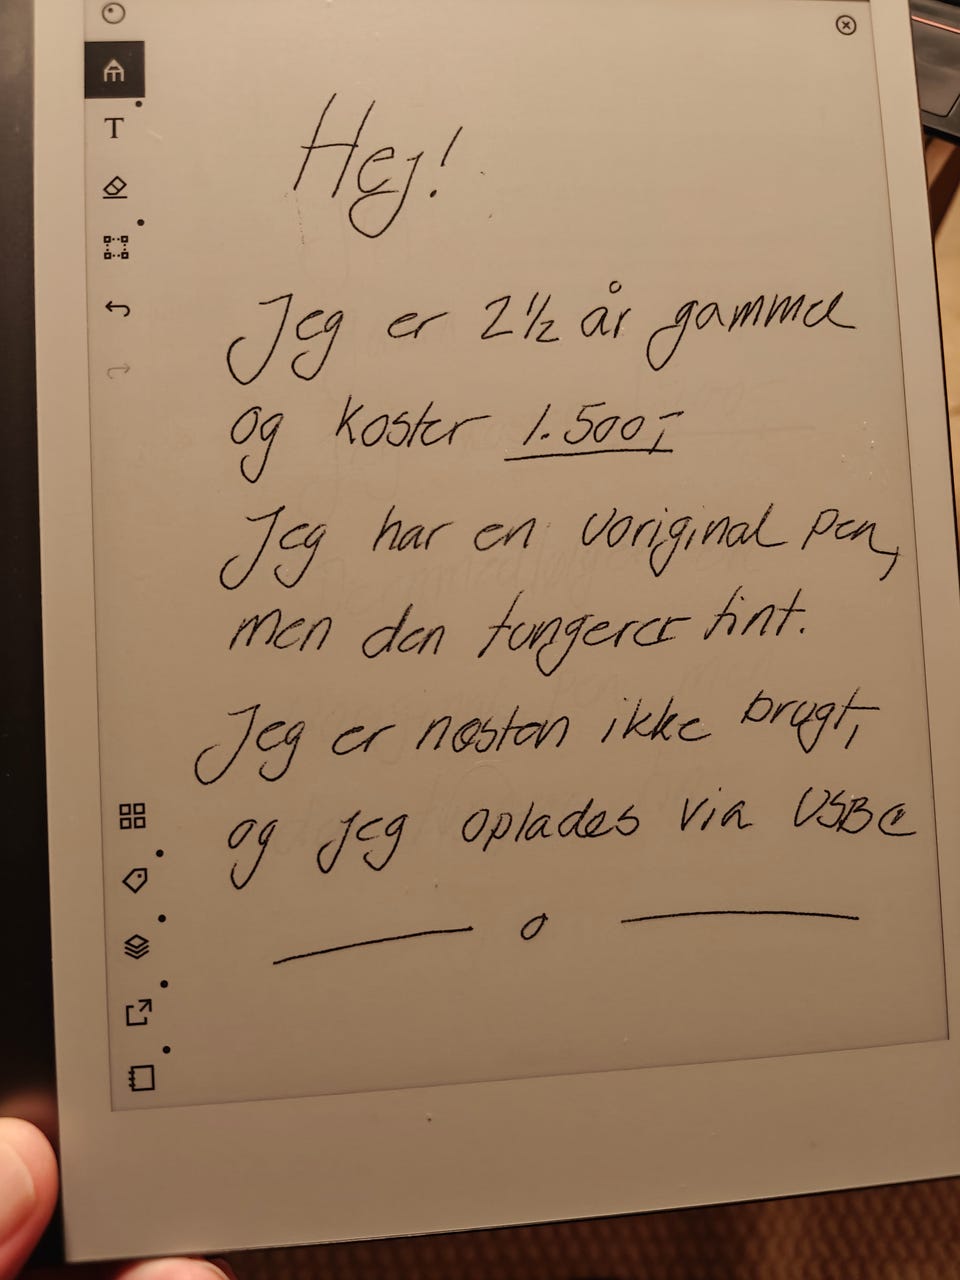 Hej!
Jeg er 2 ½ år gammel
og koster 1.500,-
Jeg har en uoriginal pen,
men den fungerer fint.
Jeg er næsten ikke brugt,
og jeg oplades via USBC
T